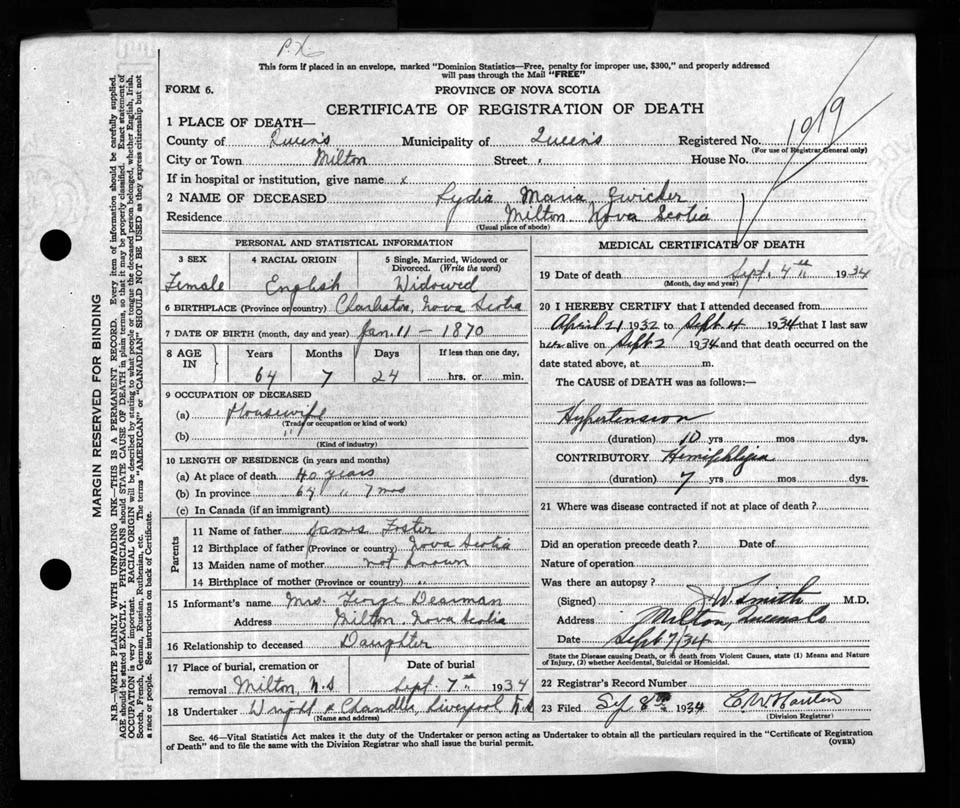 P.X.
This form if placed in an envelope, marked "Dominion Statistics—Free, penalty for improper use, $300," and properly addressed
will pass through the Mail "FREE"
FORM 6.
PROVINCE OF NOVA SCOTIA
CERTIFICATE OF REGISTRATION OF DEATH
1 PLACE OF DEATH—
County of Queens Municipality of Queens Registered No. 1019
(For use of Registrar General only)
City or Town Milton Street " House No.
If in hospital or institution, give name x
2 NAME OF DECEASED Lydia Maria Zwicker
Residence Milton Nova Scotia
(Usual place of abode)
PERSONAL AND STATISTICAL INFORMATION
3 SEX 4 RACIAL ORIGIN 5 Single, Married, Widowed or
Divorced. (Write the word)
Female English Widowed
6 BIRTHPLACE (Province or country) Charleston, Nova Scotia
7 DATE OF BIRTH (month, day and year) Jan. 11 — 1870
8 AGE IN Years Months Days If less than one day,
64 7 24 hrs. or min.
9 OCCUPATION OF DECEASED
(a) Housewife
(Trade or occupation or kind of work)
(b) "
(Kind of industry)
10 LENGTH OF RESIDENCE (in years and months)
(a) At place of death 40 years
(b) In province 64 " 7 mos
(c) In Canada (if an immigrant)
Parents
11 Name of father James Foster
12 Birthplace of father (Province or country) Nova Scotia
13 Maiden name of mother not known
14 Birthplace of mother (Province or country) "
15 Informant's name Mrs. George Dearman
Address Milton, Nova Scotia
16 Relationship to deceased Daughter
17 Place of burial, cremation or Date of burial
removal Milton, N.S Sept. 7th 1934
18 Undertaker Wright & Chandler, Liverpool N.S
(Name and address)
MEDICAL CERTIFICATE OF DEATH
19 Date of death Sept. 4th 1934
(Month, day and year)
20 I HEREBY CERTIFY that I attended deceased from
April 21 1932 to Sept 4 1934 that I last saw
her alive on Sept 2 1934 and that death occurred on the
date stated above, at m.
The CAUSE of DEATH was as follows:
Hypertension
(duration) 10 yrs mos dys.
CONTRIBUTORY Hemiphlegia
(duration) 7 yrs mos dys.
21 Where was disease contracted if not at place of death?
Did an operation precede death? Date of
Nature of operation
Was there an autopsy?
(Signed) J.W. Smith M.D.
Address Milton, Queens Co
Date Sept 7/34
State the Disease causing Death, or in death from Violent Causes, state (1) Means and Nature
of Injury, (2) whether Accidental, Suicidal or Homicidal.
22 Registrar's Record Number
23 Filed 8th 1934 C.W.
(Division Registrar)
Sec. 46—Vital Statistics Act makes it the duty of the Undertaker or person acting as Undertaker to obtain all the particulars required in the "Certificate of Registration
of Death" and to file the same with the Division Registrar who shall issue the burial permit.
(OVER)
MARGIN RESERVED FOR BINDING
N.B.—WRITE PLAINLY WITH UNFADING INK—THIS IS A PERMANENT RECORD. Every item of information should be carefully supplied.
AGE should be stated EXACTLY. PHYSICIANS should STATE CAUSE OF DEATH in plain terms, so that it may be properly classified. Exact statement of
OCCUPATION is very important. RACIAL ORIGIN will be described by stating to what people or tongue the deceased person belonged, whether English, Irish,
Scotch, French, German, Russian, Ruthenian, etc. The terms "AMERICAN" or "CANADIAN" SHOULD NOT BE USED as they express citizenship but not
a race or people. See instructions on back of Certificate.